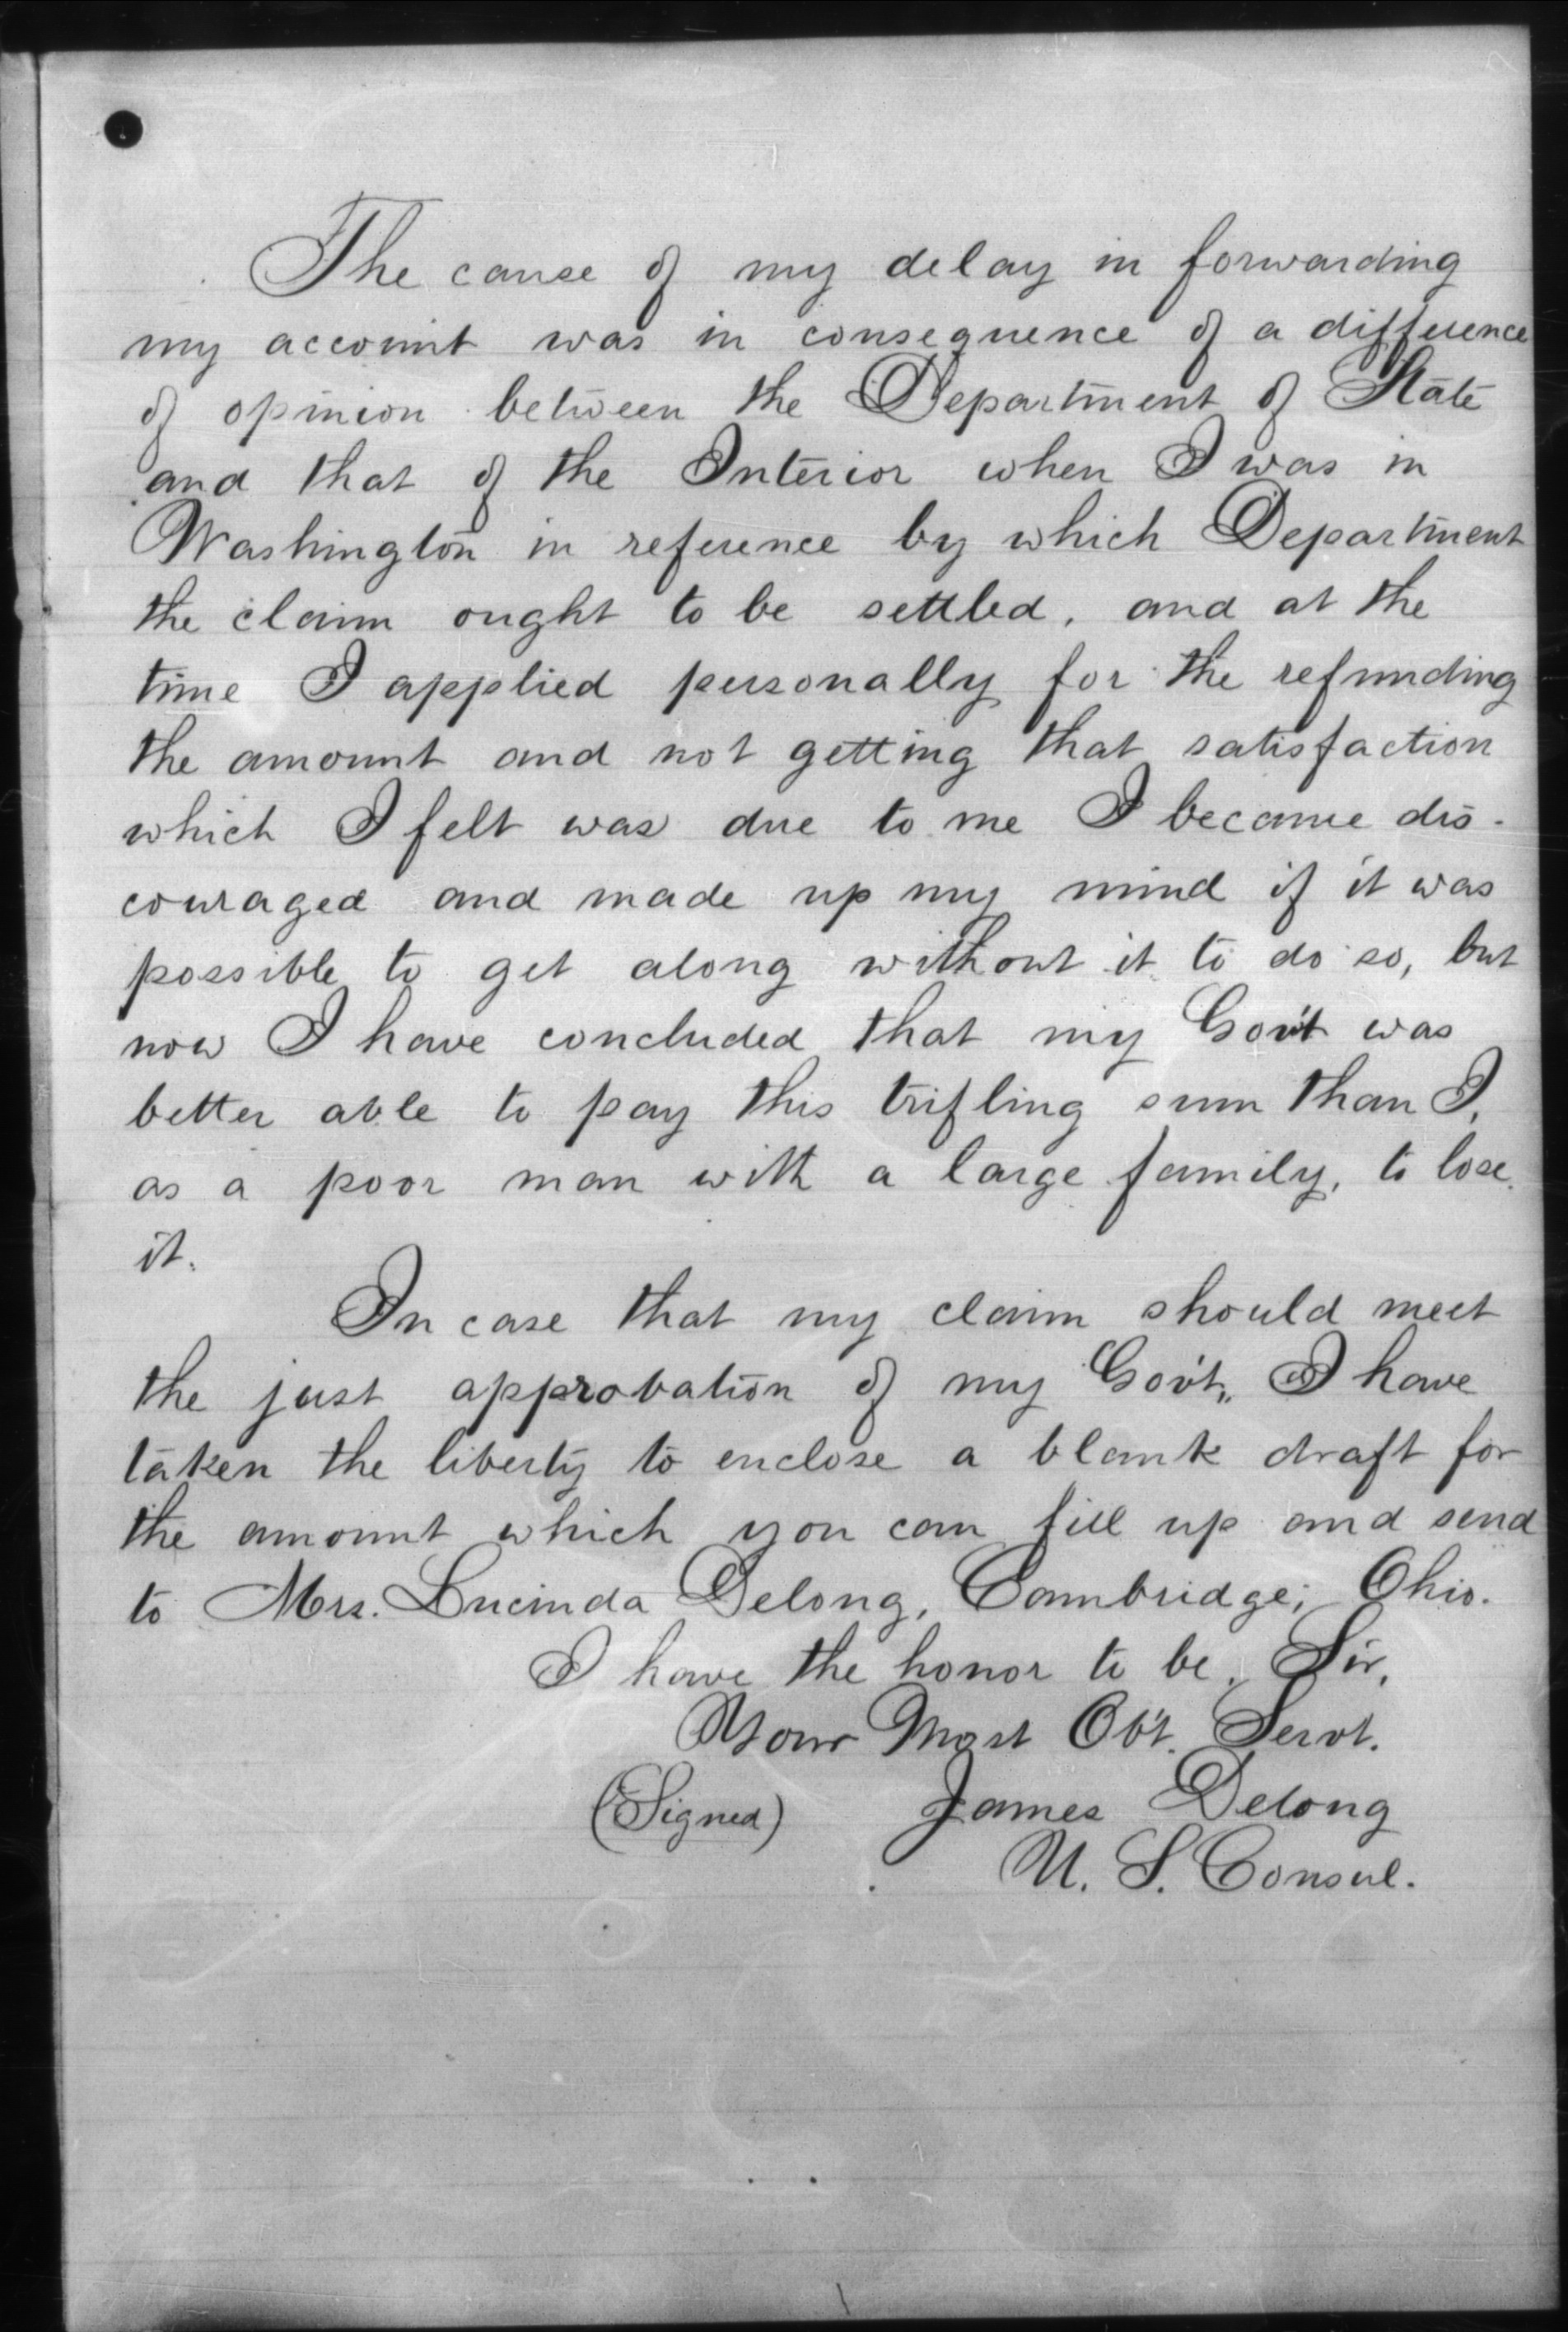 The cause of my delay in forwarding
my account was in consequence of a difference
of opinion between the Department of State
and that of the Interior when I was in
Washington in reference by which Department
the claim ought to be settled, and at the
time I applied personally for the refunding
the amount and not getting that satisfaction
which I felt was due to me I became dis-
couraged and made up my mind if it was
possible to get along without it to do so, but
now I have concluded that my Gov't was
better able to pay this trifling sum than I,
as a poor man with a large family, to lose
it.
In case that my claim should meet
the just approbation of my Gov't,, I have
taken the liberty to enclose a blank draft for
the amount which you can fill up and send
to Mrs. Lucinda Delong, Cambridge, Ohio.
I have the honor to be, Sir,
Your Most Ob't. Servt.
(Signed) James Delong
U. S. Consul.